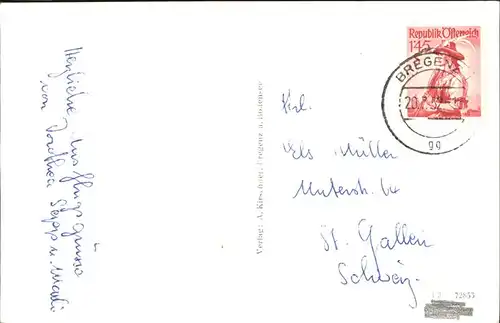 Herzliche Ausflugsgrüsse
von Dorothea Sepp u. Mali
Verlag: A. Kirschner, Bregenz a. Bodensee
Republik Österreich
1'45
BREGENZ
20.
gg
Frl.
Els Müller
Unterstr. 64
St. Gallen
Schweiz
72853